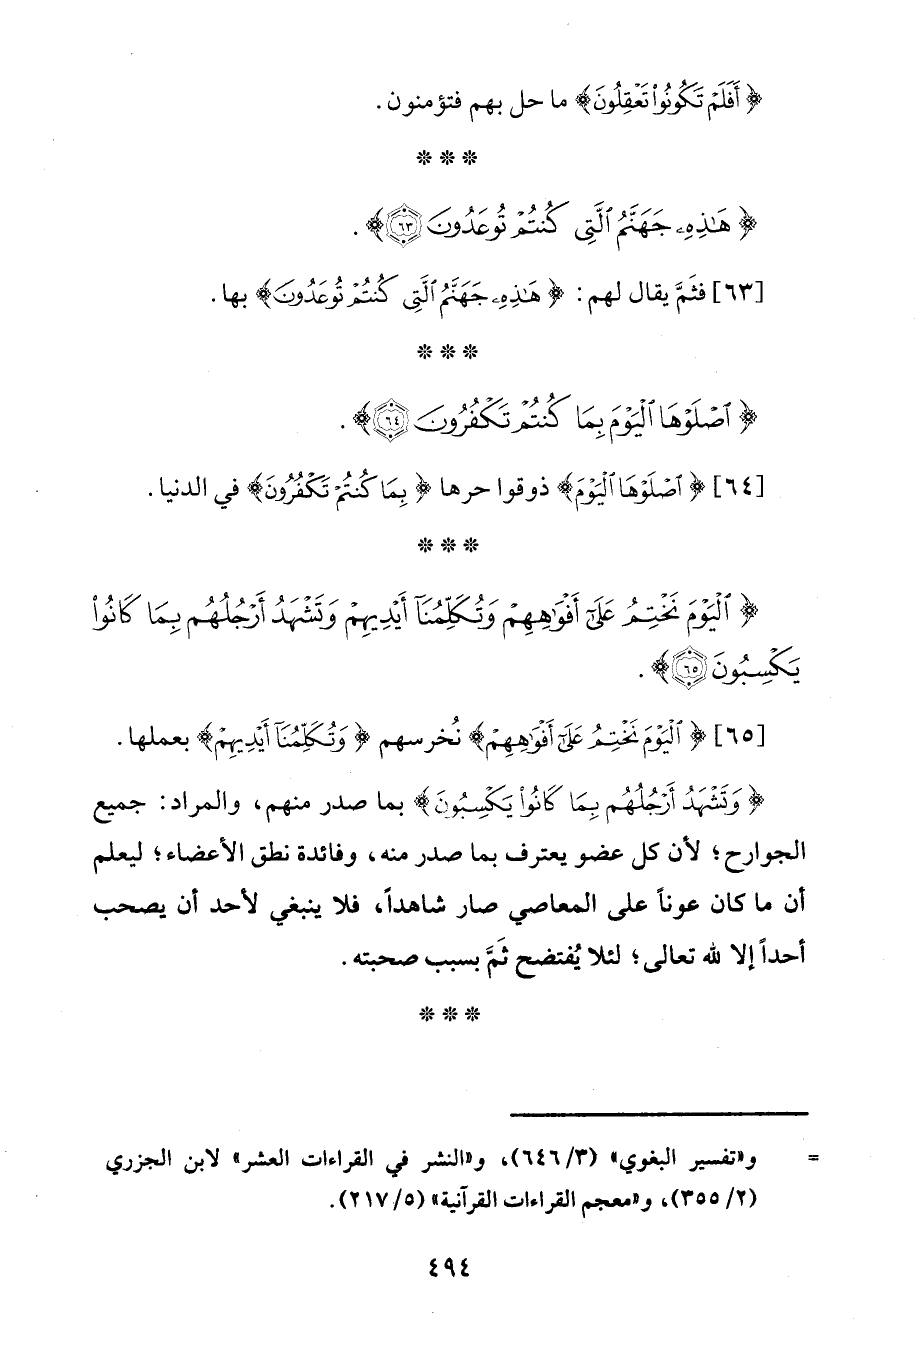 ﴿ أَفَلَمْ تَكُونُوا۟ تَعْقِلُونَ﴾ ما حل بهم فتؤمنون .
* * *
﴿ هَٰذِهِۦ جَهَنَّمُ ٱلَّتِى كُنتُمْ تُوعَدُونَ ٦٣﴾ .
[٦٣] فثَمَّ يقال لهم: ﴿ هَٰذِهِۦ جَهَنَّمُ ٱلَّتِى كُنتُمْ تُوعَدُونَ﴾ بها.
* * *
﴿ ٱصْلَوْهَا ٱلْيَوْمَ بِمَا كُنتُمْ تَكْفُرُونَ ٦٤﴾ .
[٦٤] ﴿ ٱصْلَوْهَا ٱلْيَوْمَ﴾ ذوقوا حرها ﴿ بِمَا كُنتُمْ تَكْفُرُونَ﴾ في الدنيا.
* * *
﴿ ٱلْيَوْمَ نَخْتِمُ عَلَىٰٓ أَفْوَٰهِهِمْ وَتُكَلِّمُنَآ أَيْدِيهِمْ وَتَشْهَدُ أَرْجُلُهُم بِمَا كَانُوا۟
يَكْسِبُونَ ٦٥﴾ .
[٦٥] ﴿ ٱلْيَوْمَ نَخْتِمُ عَلَىٰٓ أَفْوَٰهِهِمْ﴾ نُخرسهم ﴿ وَتُكَلِّمُنَآ أَيْدِيهِمْ﴾ بعملها.
﴿ وَتَشْهَدُ أَرْجُلُهُم بِمَا كَانُوا۟ يَكْسِبُونَ﴾ بما صدر منهم، والمراد: جميع
الجوارح؛ لأن كل عضو يعترف بما صدر منه، وفائدة نطق الأعضاء؛ ليعلم
أن ما كان عوناً على المعاصي صار شاهداً، فلا ينبغي لأحد أن يصحب
أحداً إلا لله تعالى؛ لئلا يُفتضح ثَمَّ بسبب صحبته.
* * *
= و«تفسير البغوي» (٣/ ٦٤٦)، و«النشر في القراءات العشر» لابن الجزري
(٢/ ٣٥٥)، و«معجم القراءات القرآنية» (٥/ ٢١٧).
٤٩٤